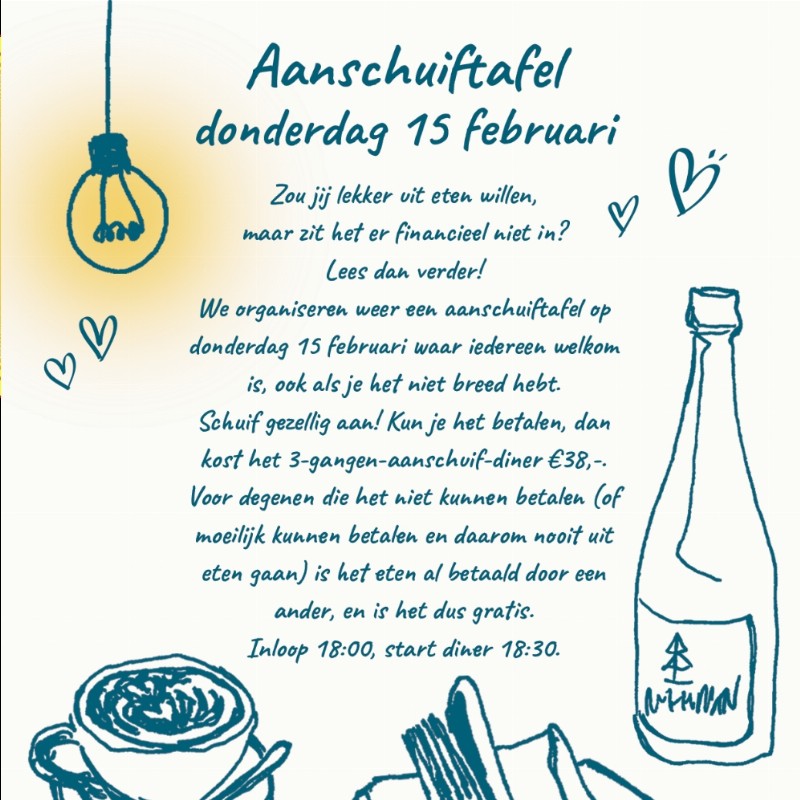 Aanschuiftafel
donderdag 15 februari
Zou jij lekker uit eten willen,
maar zit het er financieel niet in?
Lees dan verder!
We organiseren weer een aanschuiftafel op
donderdag 15 februari waar iedereen welkom
is, ook als je het niet breed hebt.
Schuif gezellig aan! Kun je het betalen, dan
kost het 3-gangen-aanschuif-diner €38,-.
Voor degenen die het niet kunnen betalen (of
moeilijk kunnen betalen en daarom nooit uit
eten gaan) is het eten al betaald door een
ander, en is het dus gratis.
Inloop 18:00, start diner 18:30.